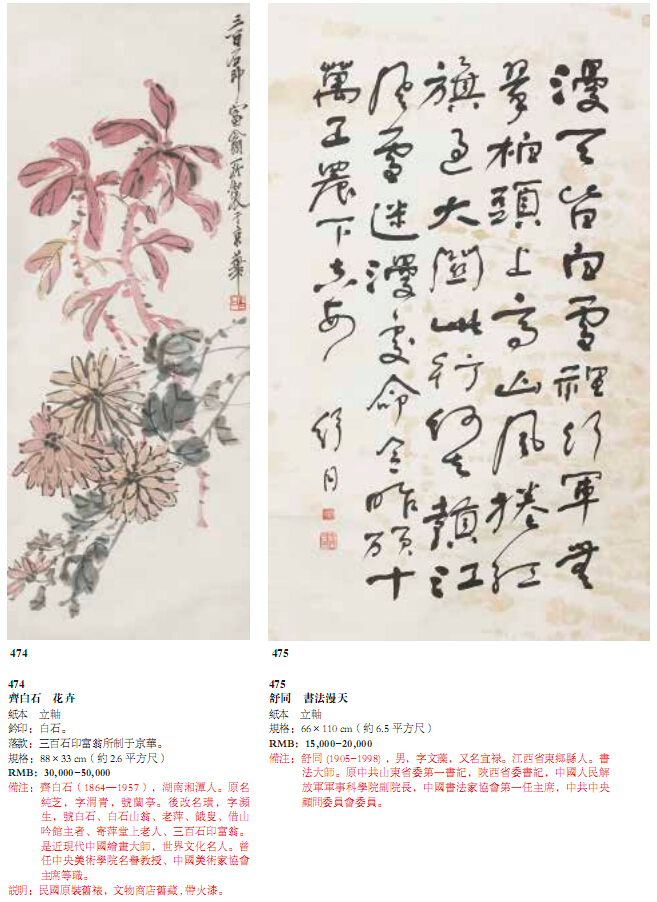 三百石印富翁齊製于京華
漫天皆白雪裡行軍無
翠柏頭上高山風捲紅
旗過大關此行何去贛江
風雪迷漫處命令昨頒十
萬工農下吉安
舒同
474
475
474
齊白石 花卉
紙本 立軸
鈐印：白石。
落款：三百石印富翁所制于京華。
規格：88×33 cm（約2.6平方尺）
RMB: 30,000-50,000
備注：齊白石（1864—1957），湖南湘潭人。原名
純芝，字渭青，號蘭亭。後改名璜，字瀕
生，號白石、白石山翁、老萍、餓叟、借山
吟館主者、寄萍堂上老人、三百石印富翁。
是近現代中國繪畫大師，世界文化名人。曾
任中央美術學院名譽教授、中國美術家協會
主席等職。
説明：民國原裝舊裱，文物商店舊藏，帶火漆。
475
舒同 書法漫天
紙本 立軸
規格：66×110 cm（約6.5平方尺）
RMB: 15,000-20,000
備注：舒同(1905-1998)，男，字文藻，又名宜禄。江西省東鄉縣人。書
法大師。原中共山東省委第一書記，陝西省委書記，中國人民解
放軍軍事科學院副院長，中國書法家協會第一任主席，中共中央
顧問委員會委員。